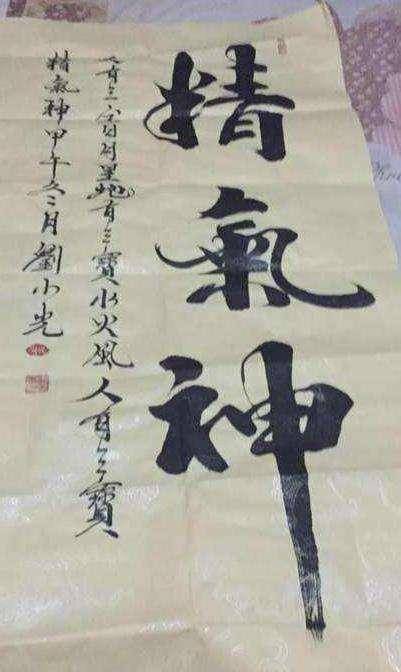 精氣神
天有三寳日月星地有三寶水火風人有三寶
精氣神甲午冬二月劉小光